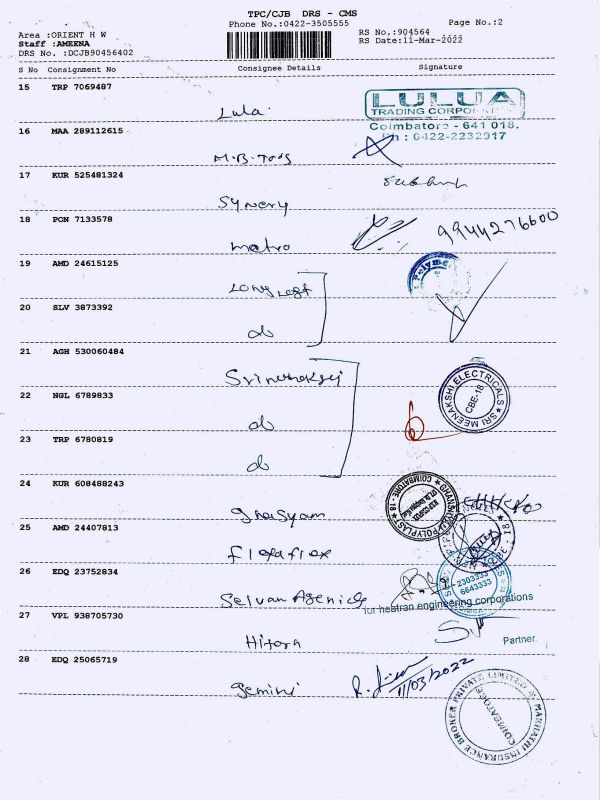 TPC/CJB DRS - CMS
Phone No.:0422-3505555
Page No.:2
Area :ORIENT H W
RS No.:904564
Staff :AMEENA
RS Date:11-Mar-2022
DRS No. :DCJB90456402
S No Consignment No Consignee Details Signature
15 TRP 7069487
Lula
LULUA
TRADING CORPORATION
Coimbatore - 641 018.
Ph : 0422-2232917
16 MAA 289112615
M.B. Tools
17 KUR 525481324
Synery
18 PON 7133578
metro
9944276600
19 AMD 24615125
Long Last
20 SLV 3873392
do
21 AGH 530060484
SRI MEENAKSHI ELECTRICALS
CBE-18
22 NGL 6789833
do
23 TRP 6780819
do
24 KUR 608488243
Gnasyam
GHANSHYAM POLYPLAST
COIMBATORE - 18
25 AMD 24407813
Flexaflex
26 EDQ 23752834
Selvan Agencies
2303333
6643333
for heatran engineering corporations
27 VPL 938705730
Hitora
Partner
28 EDQ 25065719
Gemini
11/03/2022
MARATHI INSURANCE BROKER PRIVATE LIMITED
COIMBATORE